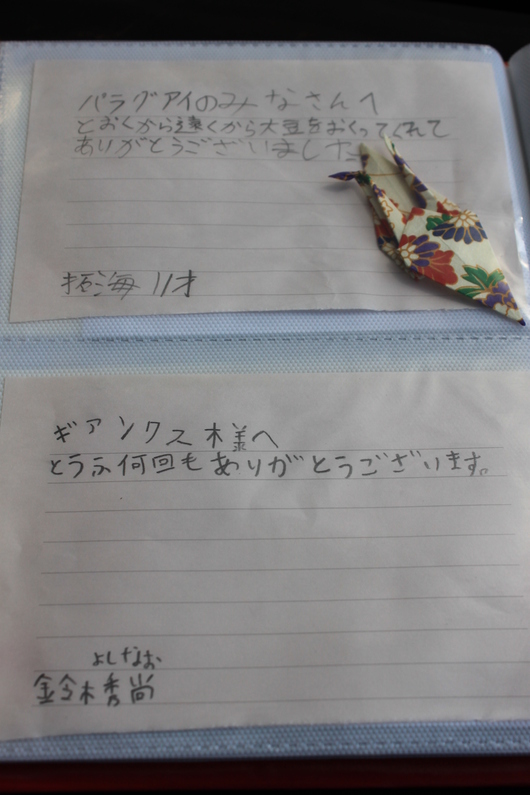 パラグアイのみなさんへ
とおくから遠くから大豆をおくってくれて
ありがとうございました
拓海 11才
ギアンクス木様へ
とうふ何回もありがとうございます。
よしなお
鈴木秀尚